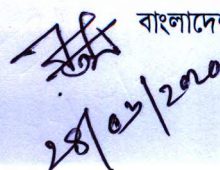 বাংলাদে
২৪/০৩/২০২০